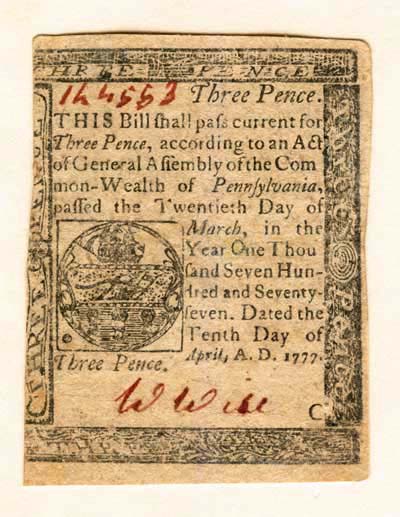 THREE PENCE
Three Pence.
THIS Bill ſhall paſs current for
Three Pence, according to an Act
of General Aſſembly of the Com
mon-Wealth of Pennſylvania,
paſſed the Twentieth Day of
March, in the
Year One Thou
ſand Seven Hun-
dred and Seventy-
ſeven. Dated the
Tenth Day of
April, A. D. 1777.
Three Pence.
C
THREE
Pence